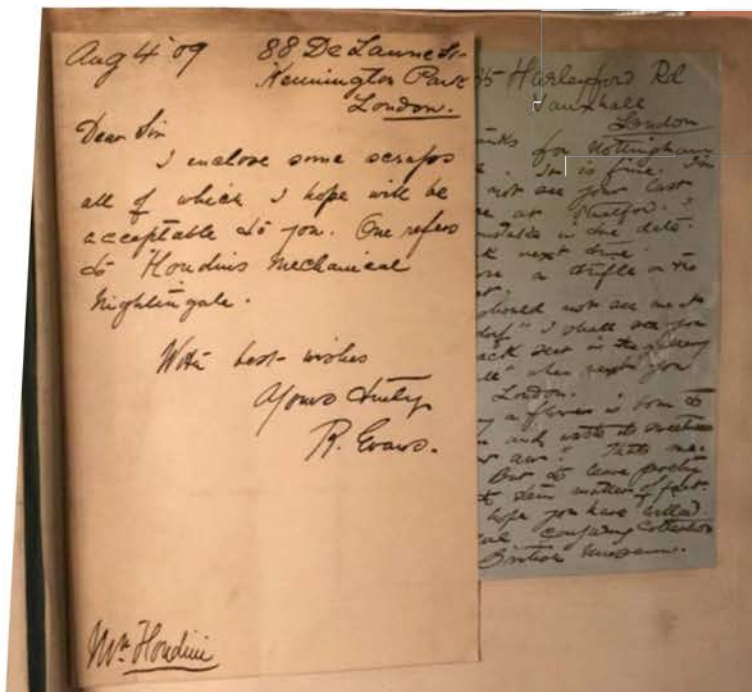 Aug 4 '09
88 De Laune St
Kennington Park
London.
Dear Sir
I enclose some scraps
all of which I hope will be
acceptable to you. One refers
to Houdins Mechanical
Nightingale.
With best wishes
Yours truly
R. Evans.
Mr Houdini
35 Harleyford Rd
Vauxhall
London
for Nottingham
is fine. I'm
not see your last
at
mistake in the date.
next time.
a trifle on the
should not see me at
I shall see you
seat in the gallery
when next you
London.
a flower is born to
and waste its sweetness
air." Thats me.
But to leave poetry
to stern matter of fact.
hope you have willed
conjuring collection
British Museum.